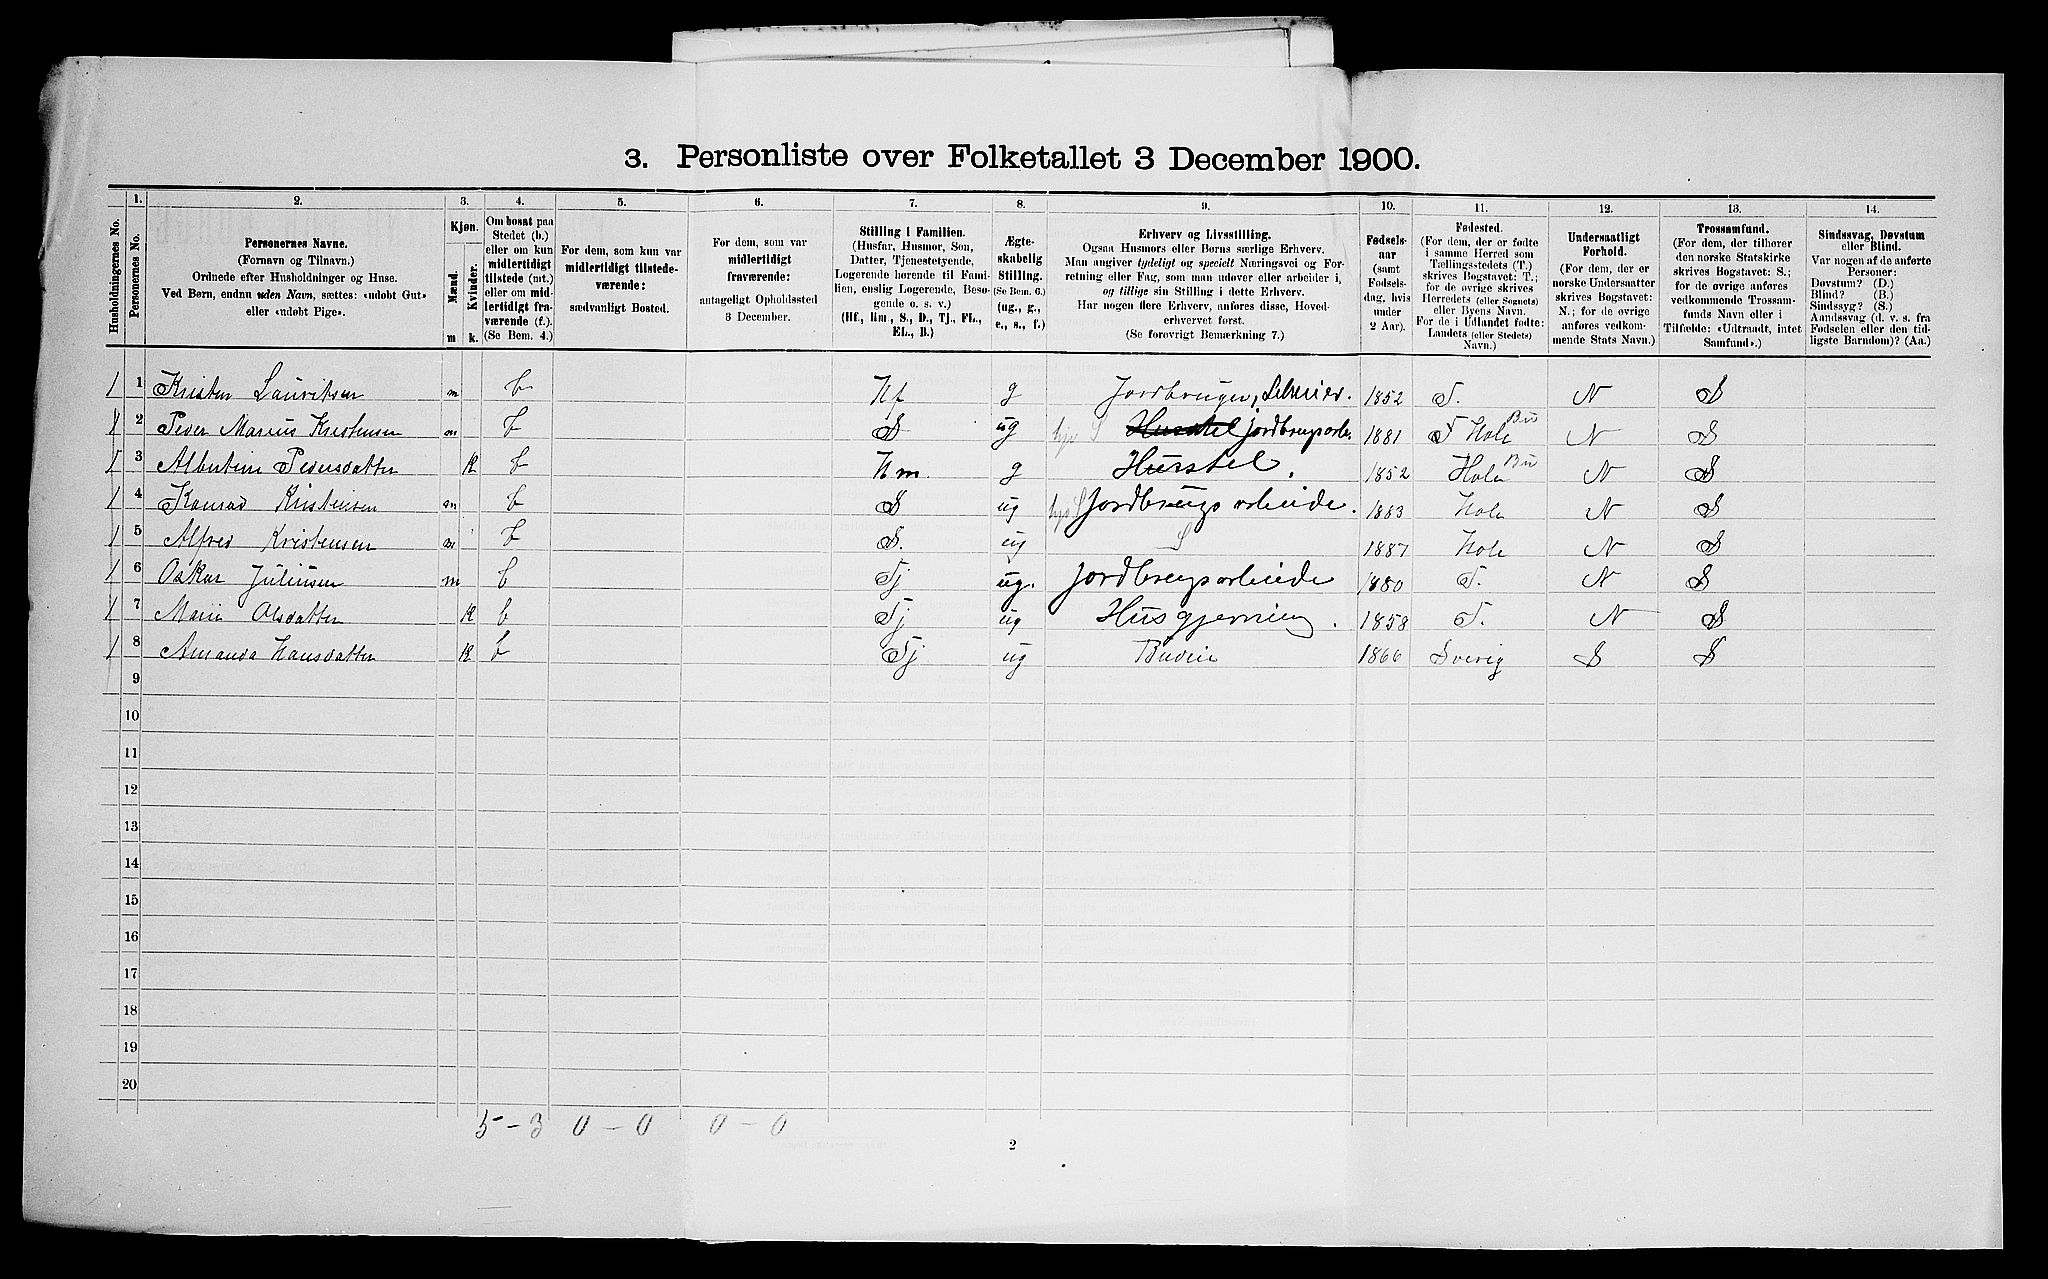 3. Personliste over Folketallet 3 December 1900.
Husholdningernes No.
1.
Personernes No.
2.
Personernes Navne.
(Fornavn og Tilnavn.)
Ordnede efter Husholdninger og Huse.
Ved Børn, endnu uden Navn, sættes: «udøbt Gut»
eller «udøbt Pige».
3.
Kjøn.
Mænd.
Kvinder.
m
k.
4.
Om bosat paa
Stedet (b.)
eller om kun
midlertidigt
tilstede (mt.)
eller om mid-
lertidigt fra-
værende (f.).
(Se Bem. 4.)
5.
For dem, som kun var
midlertidigt tilstede-
værende:
sædvanligt Bosted.
6.
For dem, som var
midlertidigt
fraværende:
antageligt Opholdssted
3 December.
7.
Stilling i Familien.
(Husfar, Husmor, Søn,
Datter, Tjenestetyende,
Logerende hørende til Fami-
lien, enslig Logerende, Besø-
gende o. s. v.)
(Hf., Hm., S., D., Tj., FL.,
EL., B.)
8.
Ægte-
skabelig
Stilling.
(Se Bem. 6.)
(ug., g.,
e., s., f.)
9.
Erhverv og Livsstilling.
Ogsaa Husmors eller Børns særlige Erhverv.
Man angiver tydeligt og specielt Næringsvei og For-
retning eller Fag, som man udøver eller arbeider i,
og tillige sin Stilling i dette Erhverv.
Har nogen flere Erhverv, anføres disse, Hoved-
erhvervet først.
(Se forøvrigt Bemærkning 7.)
10.
Fødsels-
aar
(samt
Fødsels-
dag, hvis
under
2 Aar).
11.
Fødested.
(For dem, der er fødte
i samme Herred som
Tællingsstedets (T.)
skrives Bogstavet: T.;
for de øvrige skrives
Herredets (eller Sognets)
eller Byens Navn.
For de i Udlandet fødte:
Landets (eller Stedets)
Navn.)
12.
Undersaatligt
Forhold.
(For dem, der er
norske Undersaatter
skrives Bogstavet:
N.; for de øvrige
anføres vedkom-
mende Stats Navn.)
13.
Trossamfund.
(For dem, der tilhører
den norske Statskirke
skrives Bogstavet: S.;
for de øvrige anføres
vedkommende Trossam-
funds Navn eller i
Tilfælde: «Udtraadt, intet
Samfund».)
14.
Sindssvag, Døvstum
eller Blind.
Var nogen af de anførte
Personer:
Døvstum? (D.)
Blind? (B.)
Sindssyg? (S.)
Aandssvag (d. v. s. fra
Fødselen eller den tid-
ligste Barndom)? (Aa.)
1 1 Kristen Lauritsen m b Hf g Jordbruger, Selveier. 1852 T. N S
1 2 Peder Marius Kristensen m b S ug S Husstel jordbrugsarb. 1881 T Hole Bu N S
1 3 Albertine Pedersdatter K b Hm. g Husstel. 1852 Hole Bu N S
1 4 Konrad Kristensen m. b S ug S Jordbrugsarbeide. 1883 Hole N S
1 5 Alfred Kristensen m b S. ug S 1887 Hole N S
1 6 Oskar Juliusen m b Tj ug. Jordbrugsarbeide 1880 T. N S
1 7 Marie Olsdatter K b Tj ug Husgjerning. 1858 T. N S
1 8 Amanda Hansdatter K b Tj ug Budeie 1866 Sverig S S
9
10
11
12
13
14
15
16
17
18
19
20
5 - 3 0 - 0 0 - 0
2